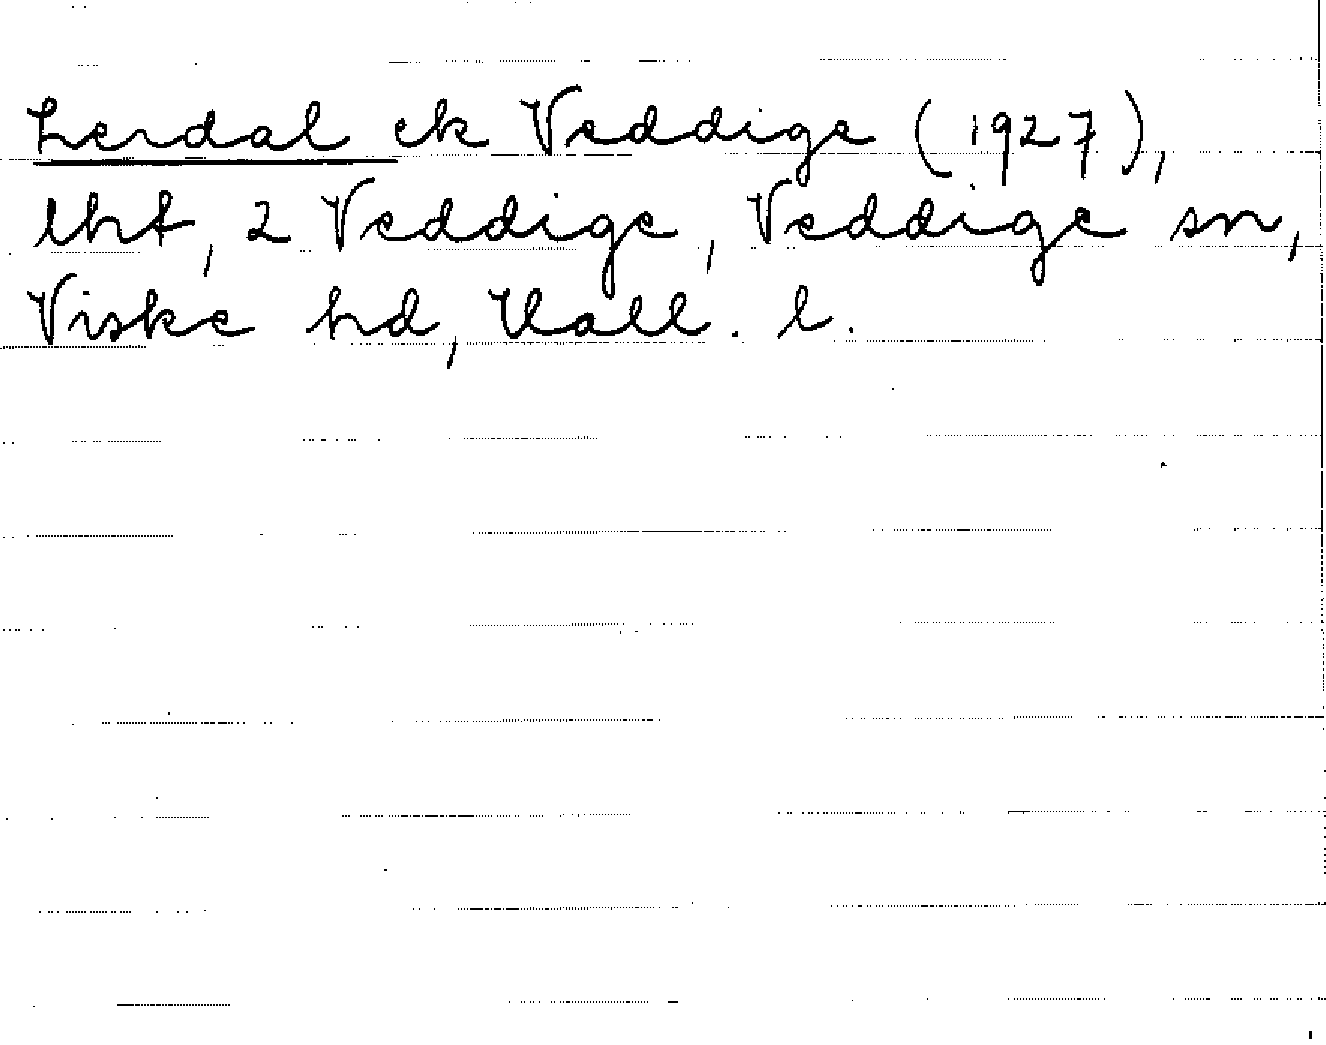 Lerdal ek Veddige (1927),
lht, 2 Veddige, Veddige sn,
Viske hd, Hall. l.